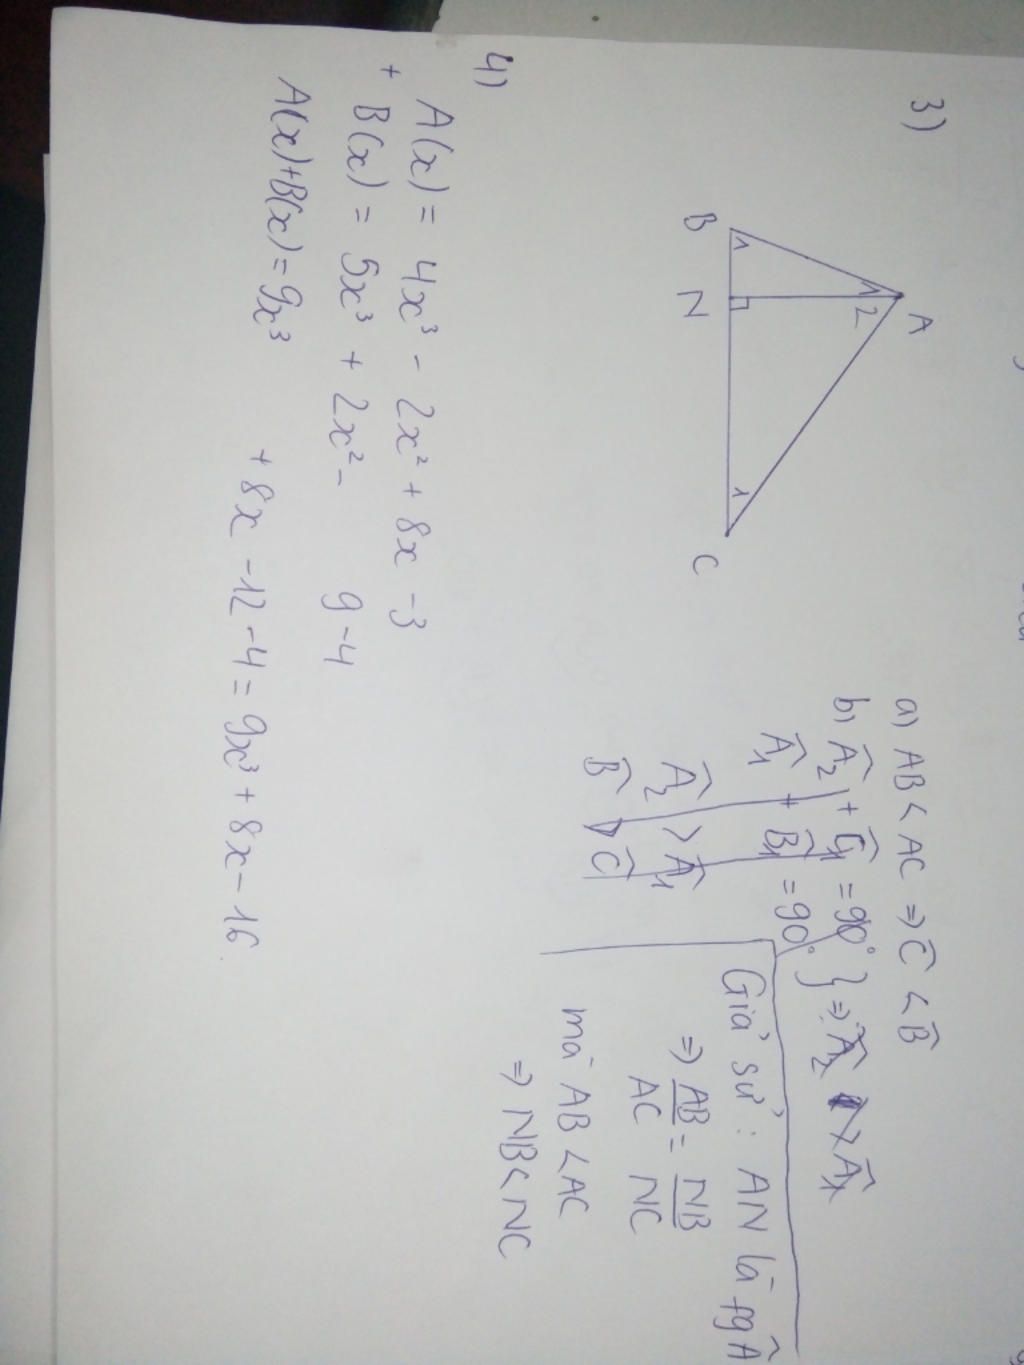 3)
A
1 2
B 1
N
1 C
a) AB < AC => Ĉ < B̂
b) Â₂ + Ĉ₁ = 90° } => Â₂ > Â₁
Â₁ + B̂₁ = 90°
Â₂ > Â₁
B̂ > Ĉ
Giả sử : AN là fg Â
=> AB/AC = NB/NC
mà AB < AC
=> NB < NC
4)
A(x) = 4x³ - 2x² + 8x - 3
+ B(x) = 5x³ + 2x² - 9 - 4
A(x)+B(x) = 9x³ + 8x - 12 - 4 = 9x³ + 8x - 16